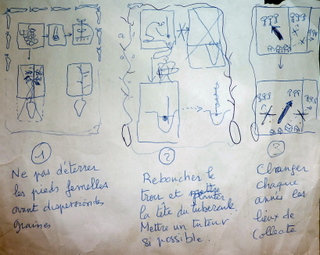 1
Ne pas déterrer
les pieds femelles
avant dispersion des
graines
2
Reboucher le
trou et planter
la tête du tubercule.
Mettre un tuteur
si possible.
3
Changer
chaque
année les
lieux de
collecte